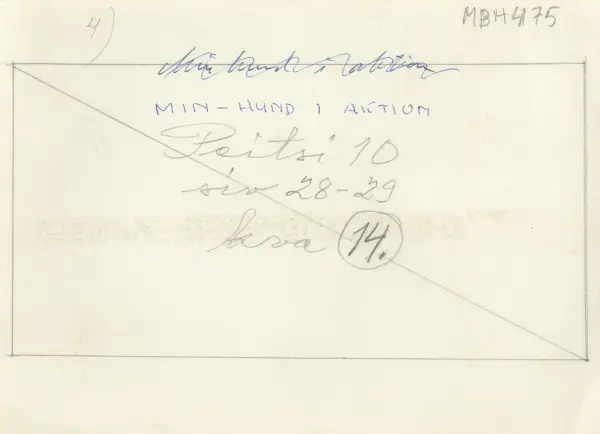 4)
MBH4175
Min hund i aktion
MIN-HUND I AKTION
Peitsi 10
siv 28-29
kva 14.